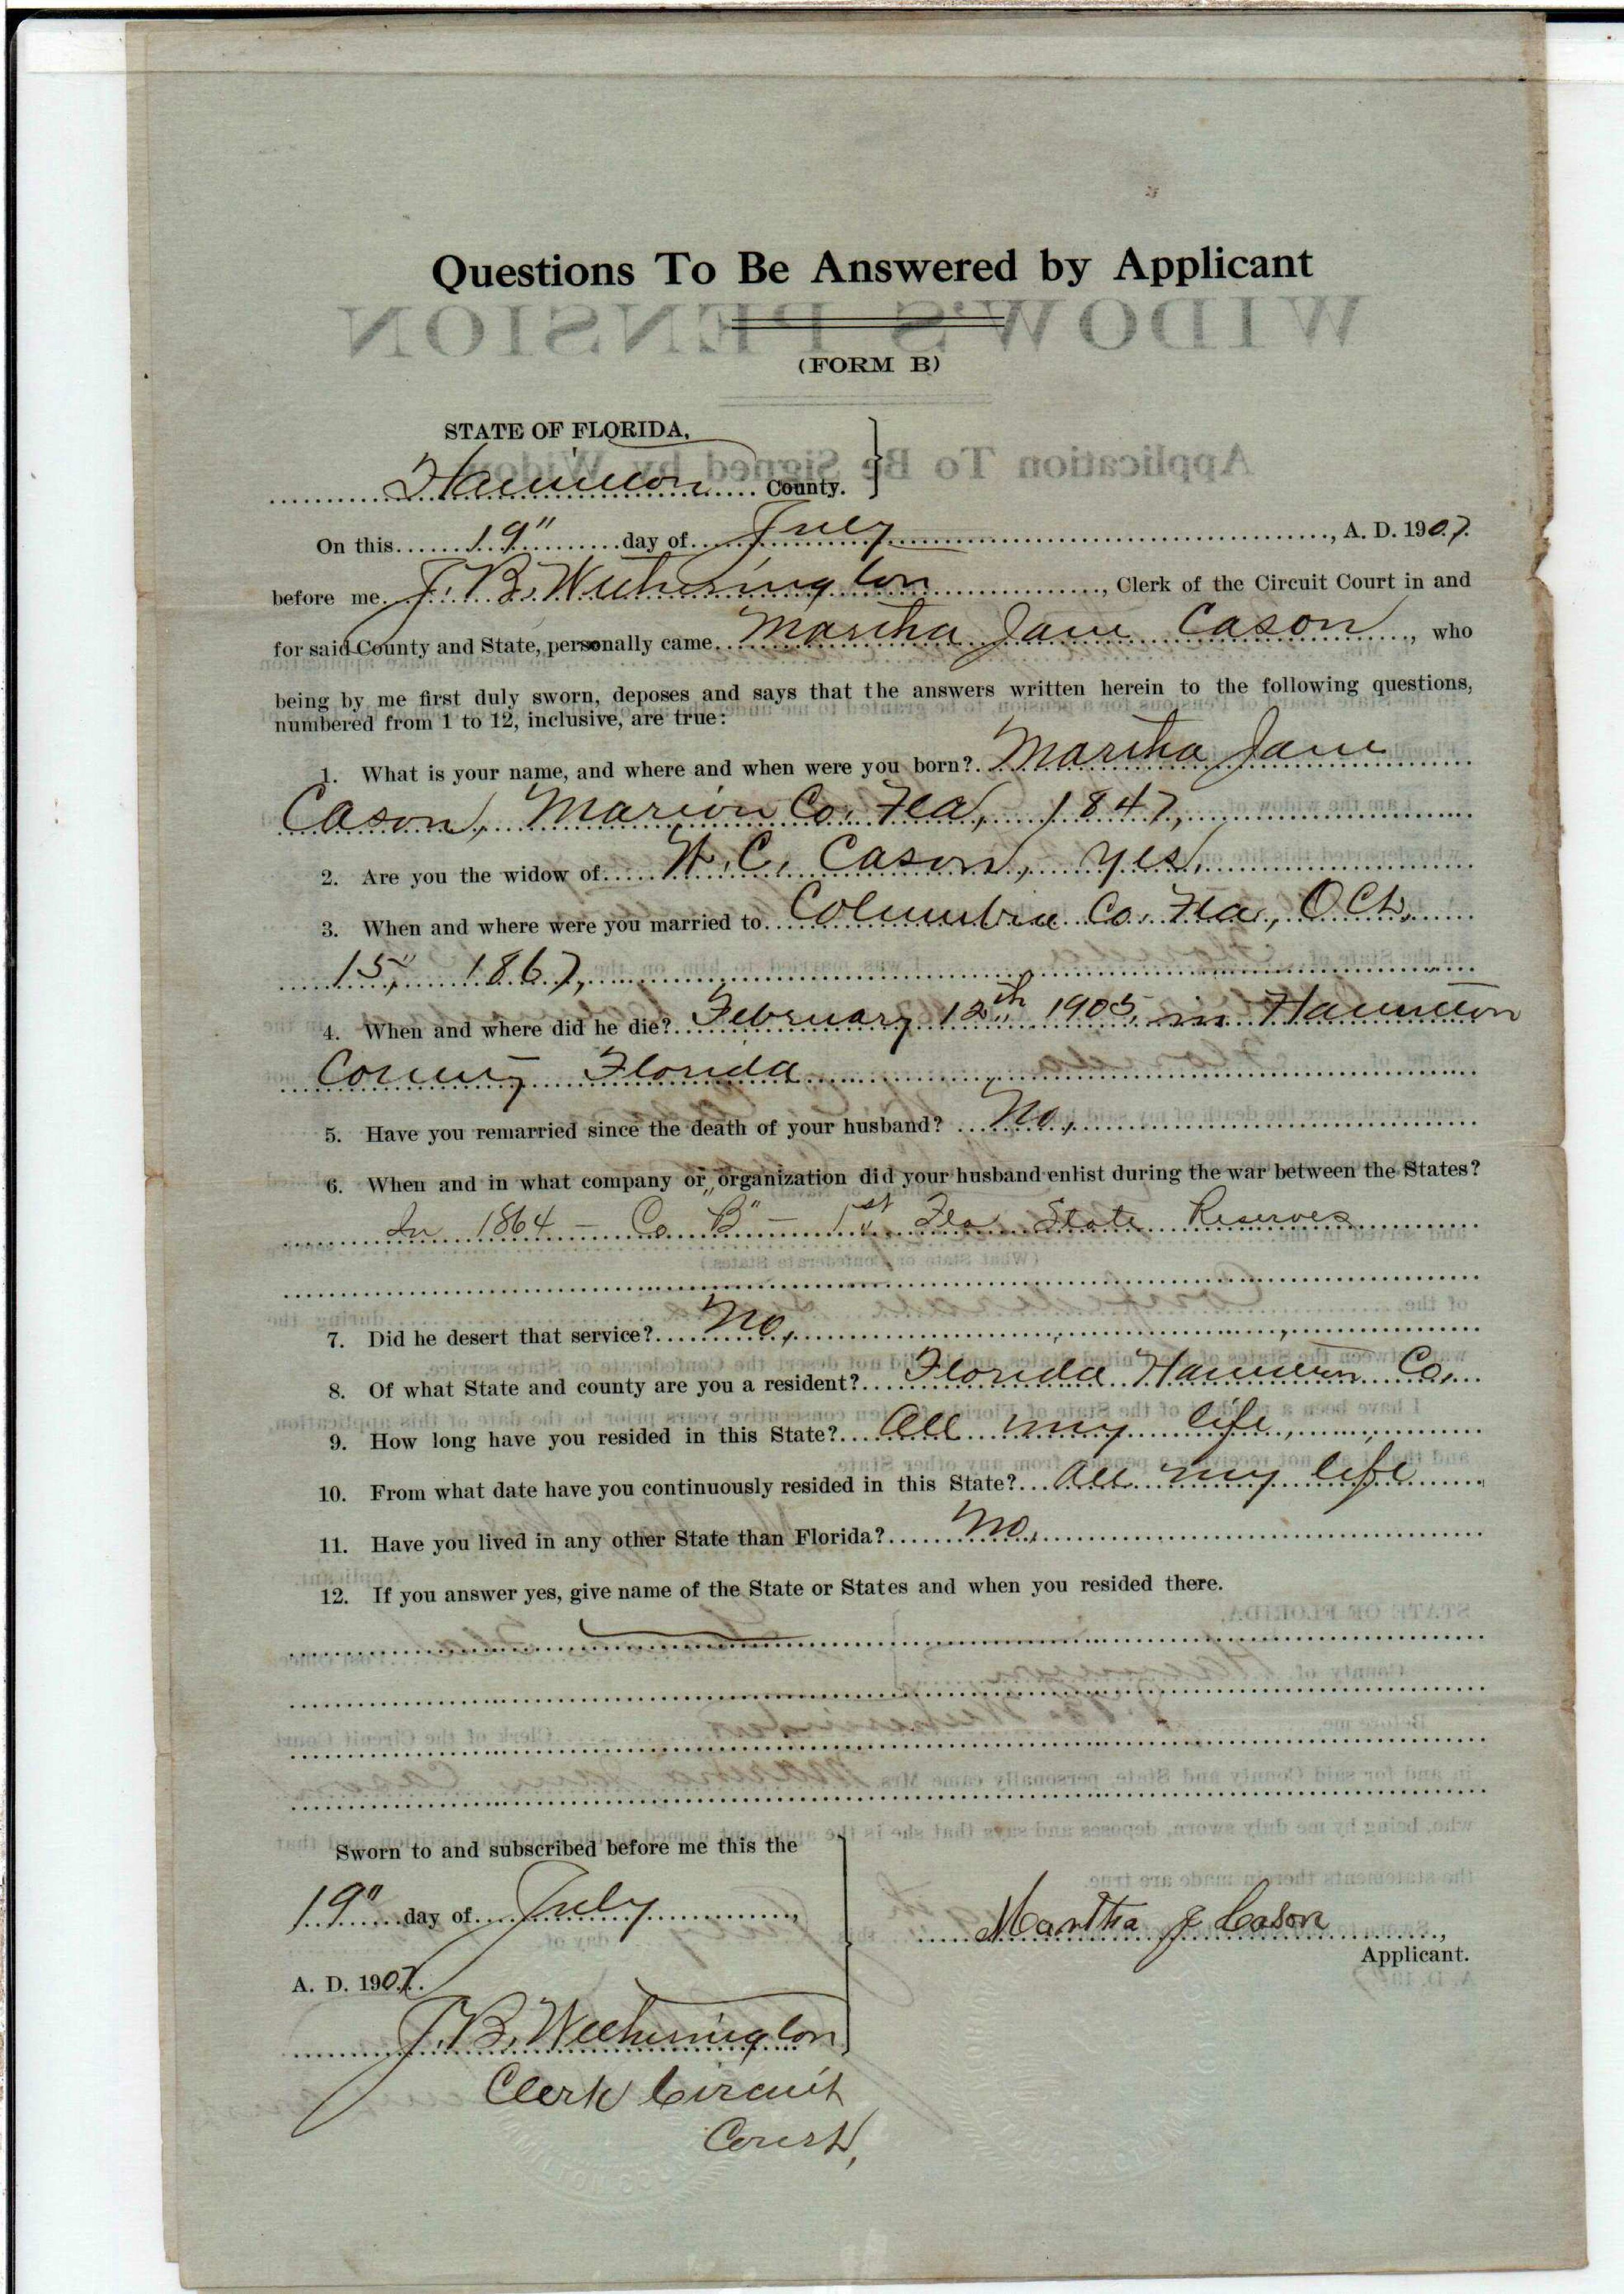 Questions To Be Answered by Applicant
(FORM B)
STATE OF FLORIDA,
Hamilton County.
On this 19" day of July, A. D. 1907.
before me J. B. Wetherington, Clerk of the Circuit Court in and
for said County and State, personally came Martha Jane Cason, who
being by me first duly sworn, deposes and says that the answers written herein to the following questions,
numbered from 1 to 12, inclusive, are true:
1. What is your name, and where and when were you born? Martha Jane
Cason, Marion Co. Fla, 1847,
2. Are you the widow of W. C. Cason, yes,
3. When and where were you married to Columbia Co. Fla, Oct,
15, 1867,
4. When and where did he die? February 12th 1905, in Hamilton
County Florida
5. Have you remarried since the death of your husband? No,
6. When and in what company or organization did your husband enlist during the war between the States?
In 1864 – Co "B" – 1st Fla State Reserves
7. Did he desert that service? No,
8. Of what State and county are you a resident? Florida Hamilton Co,
9. How long have you resided in this State? All my life,
10. From what date have you continuously resided in this State? All my life
11. Have you lived in any other State than Florida? No,
12. If you answer yes, give name of the State or States and when you resided there.
Sworn to and subscribed before me this the
19" day of July,
A. D. 1907.
J. B. Wetherington
Clerk Circuit
Court,
Martha J Cason,
Applicant.